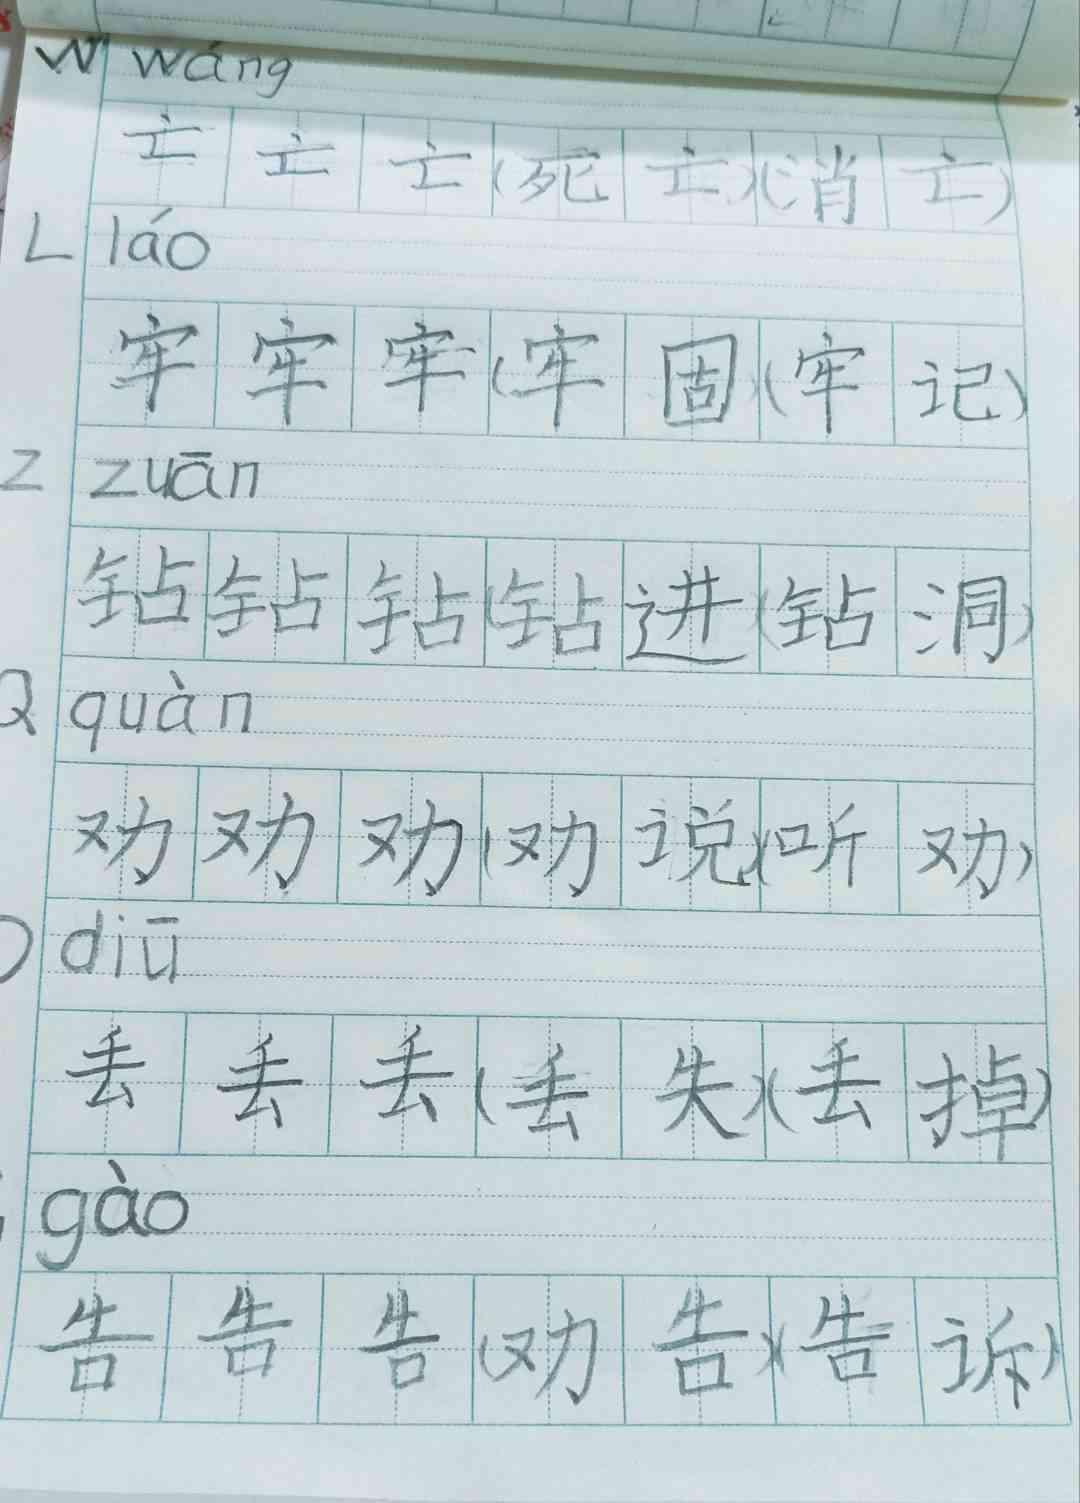 W wáng
亡亡亡(死亡)(消亡)
L láo
牢牢牢(牢固)(牢记)
Z zuān
钻钻钻(钻进)(钻洞)
Q quàn
劝劝劝(劝说)(听劝)
D diū
丢丢丢(丢失)(丢掉)
gào
告告告(劝告)(告诉)